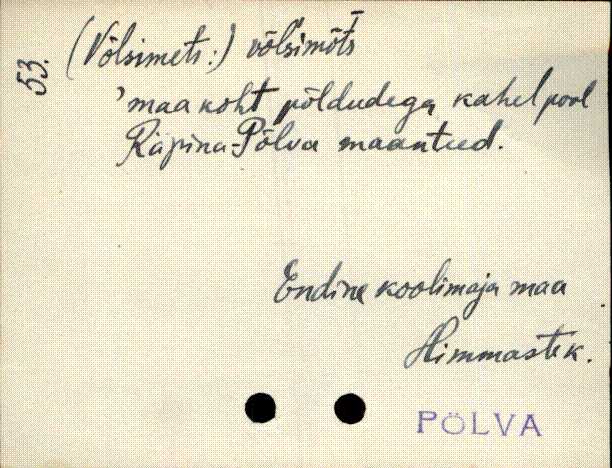 53.
(Võlsimets:) võl̄simōt̄s
'maakoht põldudega kahel pool
Räpina-Põlva maanteed.
Endine koolimaja maa
Himmaste k.
PÕLVA